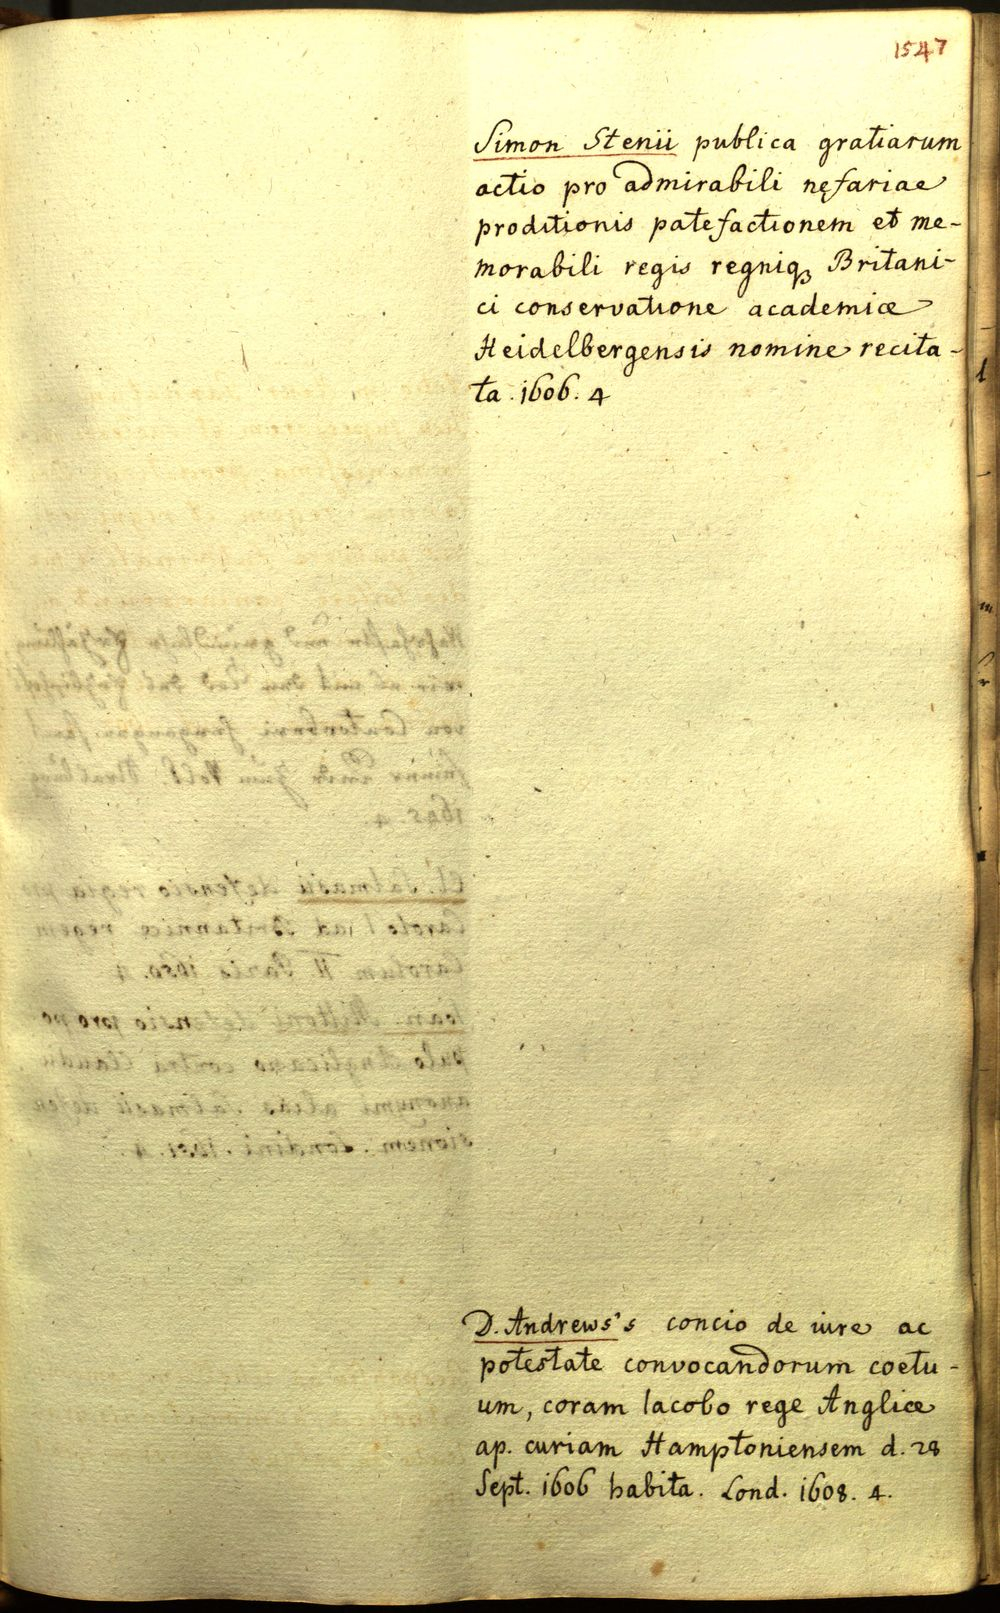 1547
Simon Stenii publica gratiarum
actio pro admirabili nęfariae
proditionis patefactionem et me-
morabili regis regniq3 Britani-
ci conservatione academiæ
Heidelbergensis nomine recita-
ta. 1606. 4
D. Andrews's concio de iure ac
potestate convocandorum coetu-
um, coram Iacobo rege Angliæ
ap. curiam Hamptoniensem d. 28
Sept. 1606 habita. Lond. 1608. 4.